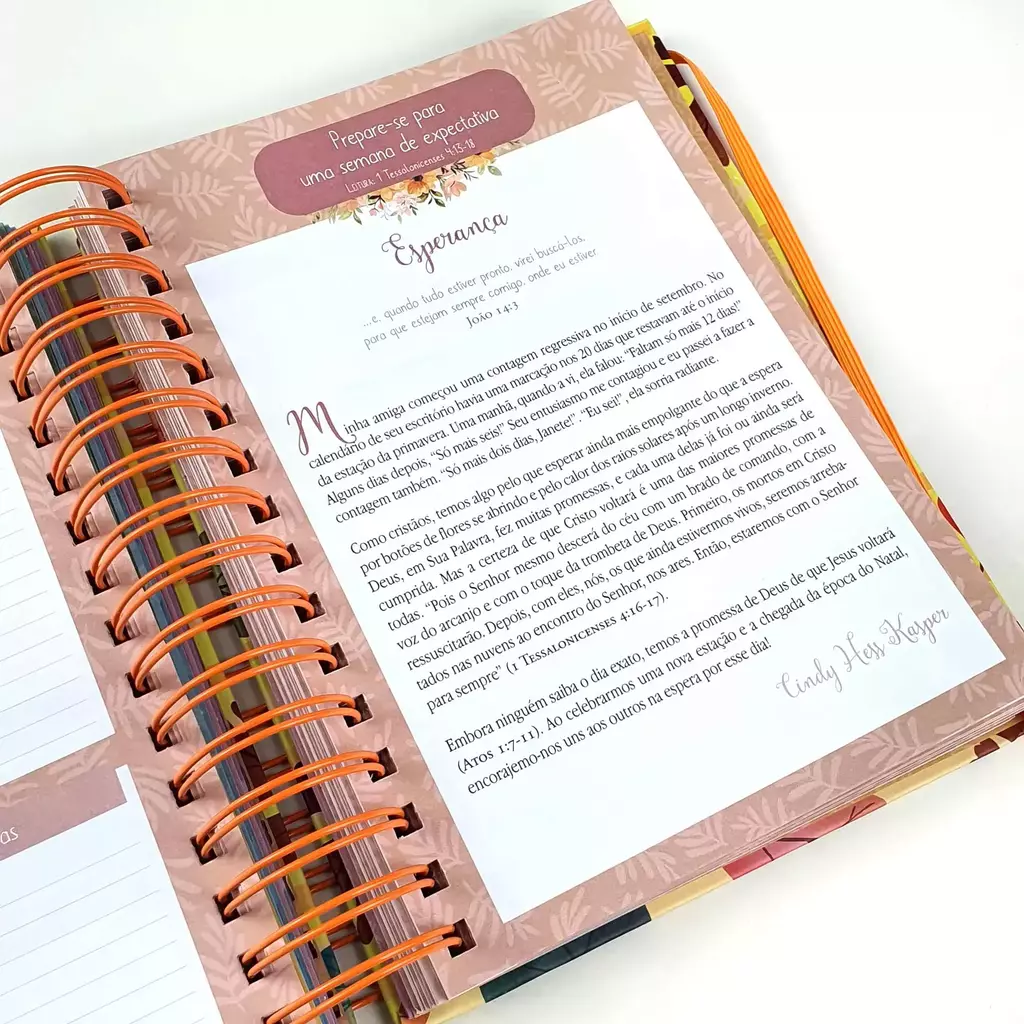 Prepare-se para
uma semana de expectativa
Leitura: 1 Tessalonicenses 4:13-18
Esperança
...e, quando tudo estiver pronto, virei buscá-los,
para que estejam sempre comigo, onde eu estiver.
João 14:3
Minha amiga começou uma contagem regressiva no início de setembro. No
calendário de seu escritório havia uma marcação nos 20 dias que restavam até o início
da estação da primavera. Uma manhã, quando a vi, ela falou: “Faltam só mais 12 dias!”
Alguns dias depois, “Só mais seis!” Seu entusiasmo me contagiou e eu passei a fazer a
contagem também. “Só mais dois dias, Janete!”. “Eu sei!”, ela sorria radiante.
Como cristãos, temos algo pelo que esperar ainda mais empolgante do que a espera
por botões de flores se abrindo e pelo calor dos raios solares após um longo inverno.
Deus, em Sua Palavra, fez muitas promessas, e cada uma delas já foi ou ainda será
cumprida. Mas a certeza de que Cristo voltará é uma das maiores promessas de
todas: “Pois o Senhor mesmo descerá do céu com um brado de comando, com a
voz do arcanjo e com o toque da trombeta de Deus. Primeiro, os mortos em Cristo
ressuscitarão. Depois, com eles, nós, os que ainda estivermos vivos, seremos arreba-
tados nas nuvens ao encontro do Senhor, nos ares. Então, estaremos com o Senhor
para sempre” (1 Tessalonicenses 4:16-17).
Embora ninguém saiba o dia exato, temos a promessa de Deus de que Jesus voltará
(Atos 1:7-11). Ao celebrarmos uma nova estação e a chegada da época do Natal,
encorajemo-nos uns aos outros na espera por esse dia!
Cindy Hess Kasper
as